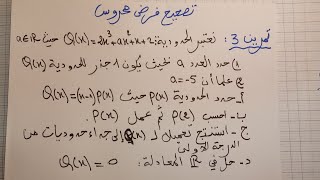 تصحيح فرض محروس
تمرين 3: نعتبر الحدودية: Q(x)=2x³+ax²+x+2 حيث a∈ℝ
1) حدد العدد a بحيث يكون 1 جذر للحدودية Q(x)
2) علما أن a=-5
أ- حدد الحدودية P(x) حيث Q(x)=(x-1)P(x)
ب- احسب P(2) ثم عمل P(x).
ج- استنتج تعميل لـ Q(x) إلى جداء حدوديات من
الدرجة الأولى
د- حل في ℝ المعادلة: Q(x)=0